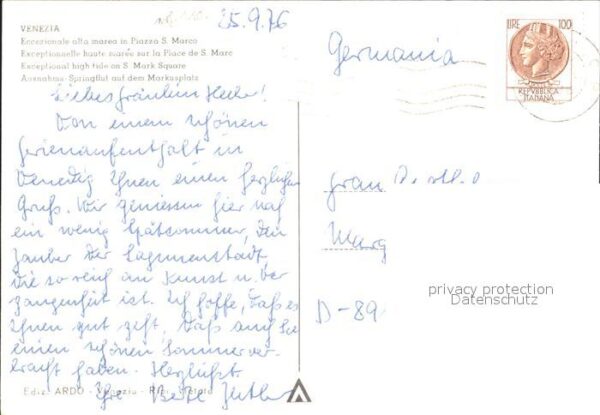 25.9.76
VENEZIA
Eccezionale alta marea in Piazza S. Marco
Exceptionnelle haute marée sur la Place de S. Marc
Exceptional high tide on S. Mark Square
Ausnahme-Springflut auf dem Markusplatz
Germania
LIRE 100
REPVBBLICA
ITALIANA
Liebes Fräulein
Von einem schönen
Ferienaufenthalt in
Venedig Ihnen einen herzlichen
Gruß. Wir geniessen hier noch
ein wenig Spätsommer, den
Zauber der Lagunenstadt,
die so reich an Kunst u. Ver
gangenheit ist. Ich hoffe, daß es
Ihnen gut geht, daß auch Sie
einen schönen Sommer ver
bracht haben. Herzlichst
Ihre Beate
D-89
privacy protection
Datenschutz
Ediz. ARDO - Venezia